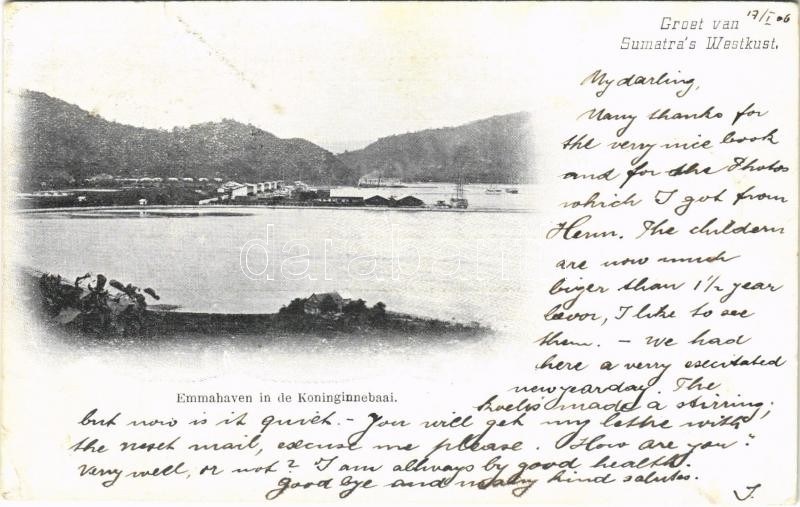 17/I 06
Groet van
Sumatra's Westkust.
My darling,
Many thanks for
the very nice book
and for the Photos
which I got from
Henn. The childern
are now much
biger than 1½ year
bevor, I like to see
them. - We had
here a verry excitated
newyearday. The
koelis made a stirring;
but now is it quiet. - You will get my lettre with
the next mail, excuse me please. How are you?
Very well, or not? I am allways by good health.
Good bye and many kind salutes.
J.
Emmahaven in de Koninginnebaai.